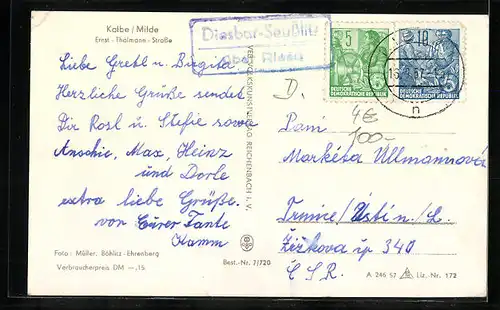 Kalbe / Milde
Ernst - Thälmann - Straße
Liebe Gretl u. Birgita
Herzliche Grüße sendet
Dir Rosl u. Stefie sowie
Anschie, Max, Heinz
und Dorle
extra liebe Grüße.
von Eurer Tante
Hamm
Foto: Müller, Böhlitz-Ehrenberg
Verbraucherpreis DM —,15
Best.-Nr. 7/720
VERLAG REICHENBACH i. V.
Diesbar-Seußlitz
über Riesa
5
DEUTSCHE
DEMOKRATISCHE REPUBLIK
10
DEUTSCHE
DEMOKRATISCHE REPUBLIK
D.
4€
100-
Paní
Markéta Ullmannová
Trmice/Ústí n./L.
Žižkova čp 340
ČSR.
A 246 57 Liz.-Nr. 172